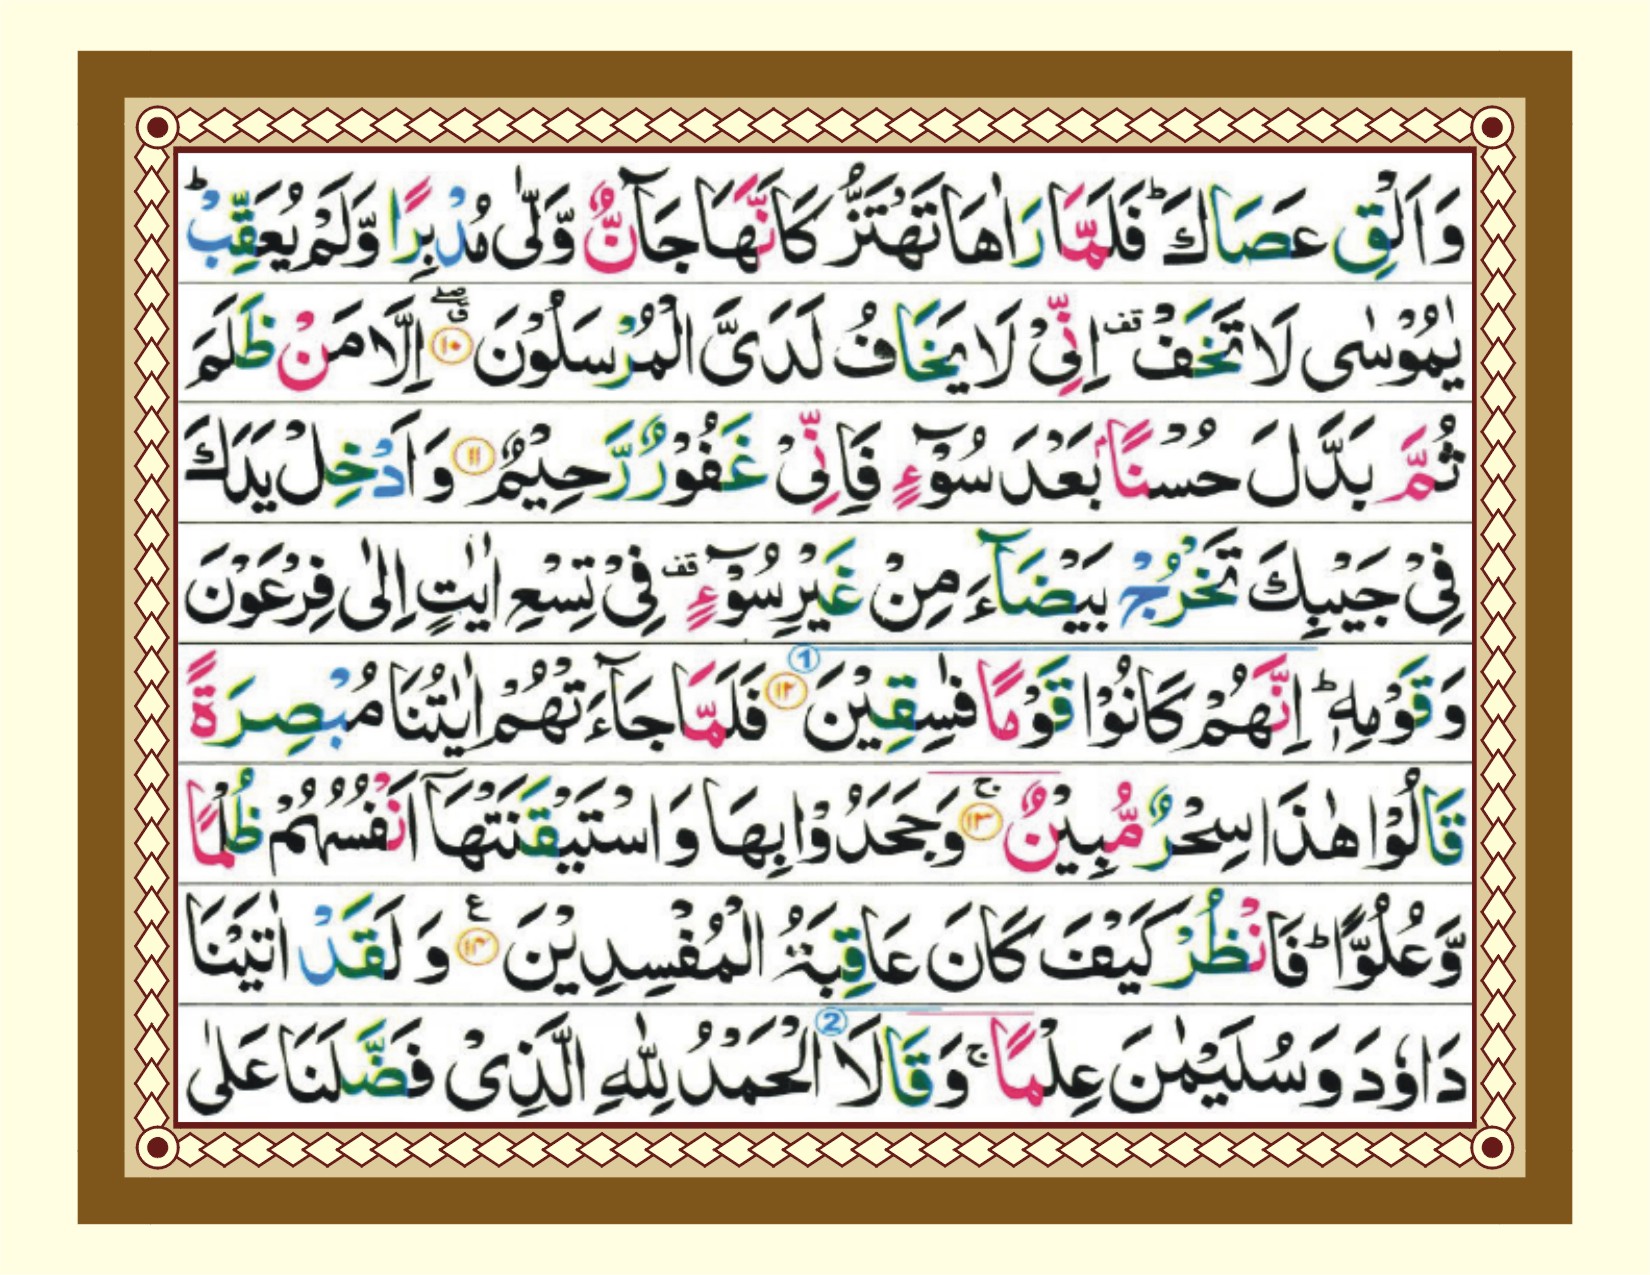 وَاَلْقِ عَصَاكَ ؕ فَلَمَّا رَاٰهَا تَهْتَزُّ كَاَنَّهَا جَآنٌّ وَّلّٰى مُدْبِرًا وَّلَمْ يُعَقِّبْ ؕ
يٰمُوْسٰى لَا تَخَفْ قف اِنِّىْ لَا يَخَافُ لَدَىَّ الْمُرْسَلُوْنَ ۖق ﴿۱۰﴾ اِلَّا مَنْ ظَلَمَ
ثُمَّ بَدَّلَ حُسْنًۢا بَعْدَ سُوْٓءٍ فَاِنِّىْ غَفُوْرٌ رَّحِيْمٌ ﴿۱۱﴾ وَاَدْخِلْ يَدَكَ
فِىْ جَيْبِكَ تَخْرُجْ بَيْضَآءَ مِنْ غَيْرِ سُوْٓءٍ قف فِىْ تِسْعِ اٰيٰتٍ اِلٰى فِرْعَوْنَ
وَقَوْمِهٖ ؕ اِنَّهُمْ كَانُوْا قَوْمًا فٰسِقِيْنَ ﴿۱۲﴾ ① فَلَمَّا جَآءَتْهُمْ اٰيٰتُنَا مُبْصِرَةً
قَالُوْا هٰذَا سِحْرٌ مُّبِيْنٌ ۚ ﴿۱۳﴾ وَجَحَدُوْا بِهَا وَاسْتَيْقَنَتْهَآ اَنْفُسُهُمْ ظُلْمًا
وَّعُلُوًّا ؕ فَانْظُرْ كَيْفَ كَانَ عَاقِبَةُ الْمُفْسِدِيْنَ ع ﴿۱۴﴾ وَلَقَدْ اٰتَيْنَا
دَاوٗدَ وَسُلَيْمٰنَ عِلْمًا ۚ وَقَالَا ② الْحَمْدُ لِلّٰهِ الَّذِىْ فَضَّلَنَا عَلٰى